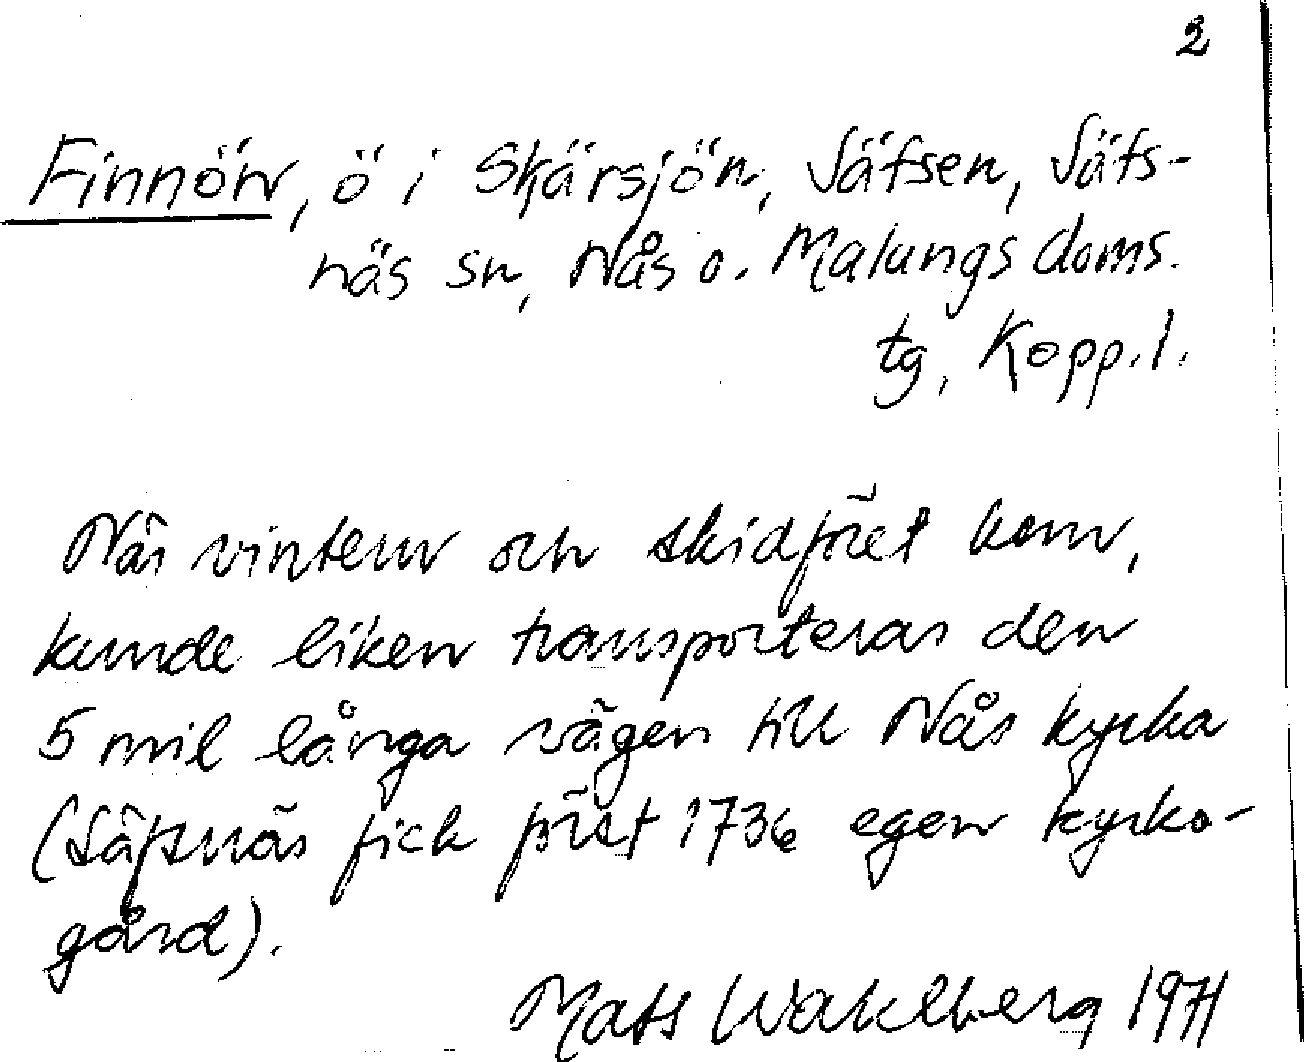 2
Finnön, ö i Skärsjön, Säfsen, Säfs-
näs sn, Nås o. Malungs doms.
tg, Kopp.l.
När vintern och skidföret kom,
kunde liken transporteras den
5 mil långa vägen till Nås kyrka
(Säfsnäs fick först 1736 egen kyrko-
gård).
Mats Wahlberg 1971